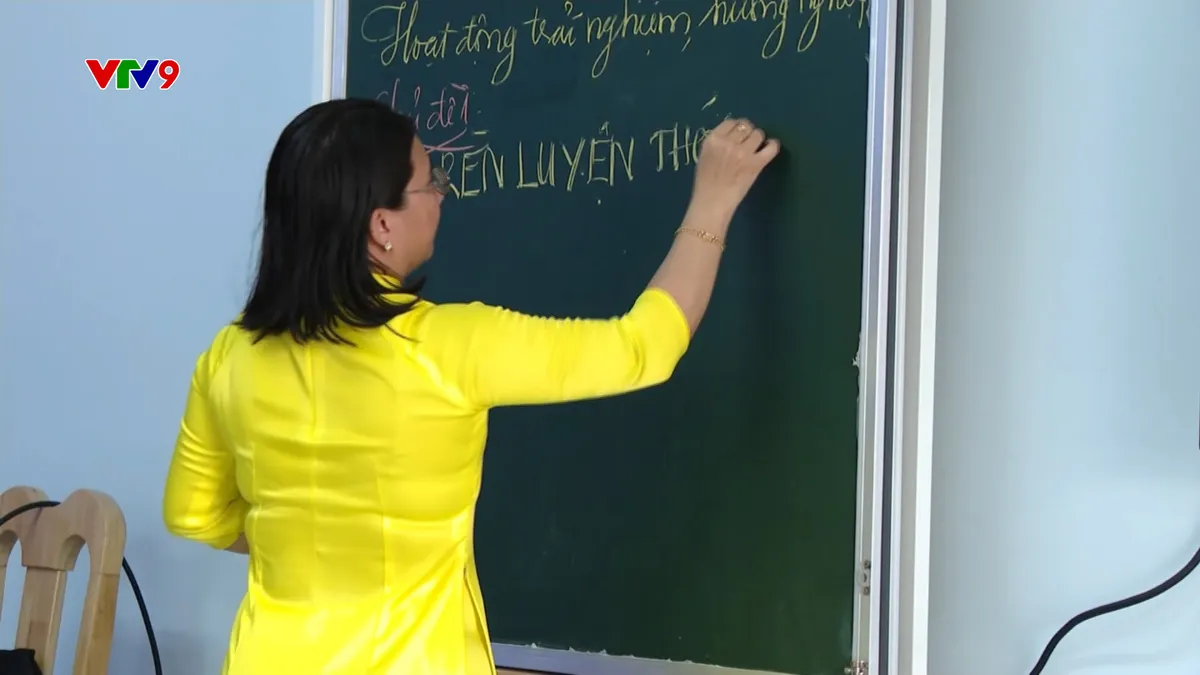 VTV9
Hoạt động trải nghiệm, hướng nghiệp
Chủ đề 1:
RÈN LUYỆN